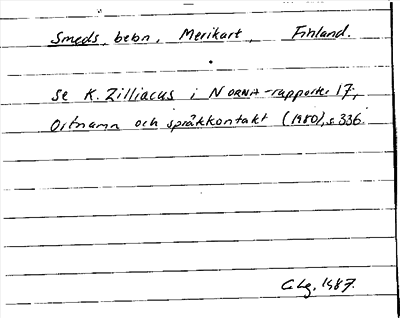 Smeds, bebn, Merikart, Finland.
se K. Zilliacus i NORNA-rapporter 17,
Ortnamn och språkkontakt (1980), s 336.
C Lg. 1987.